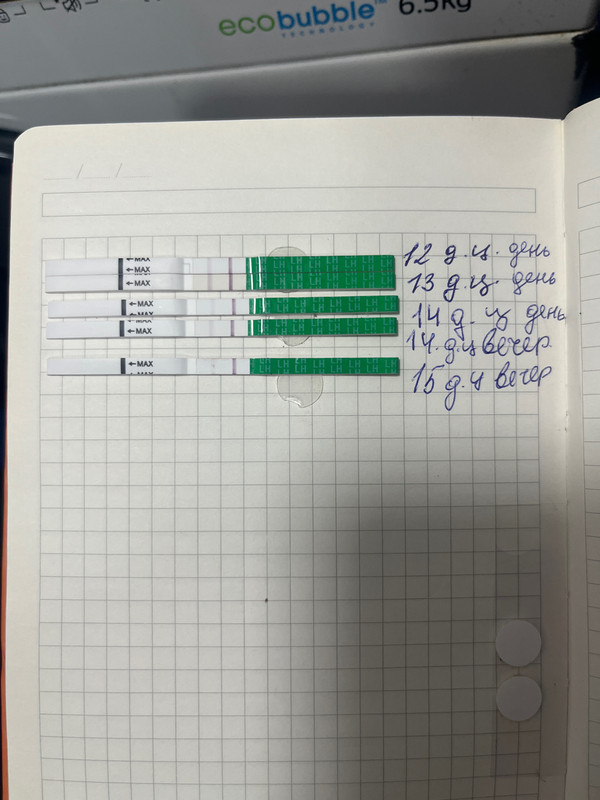 ecobubble™ 6.5кg
TECHNOLOGY
12 д.ц. день
13 д.ц. день
14 д.ц день
14 д.ц вечер
15 д.ц вечер
←MAX
←MAX
←MAX
←MAX
←MAX
←MAX